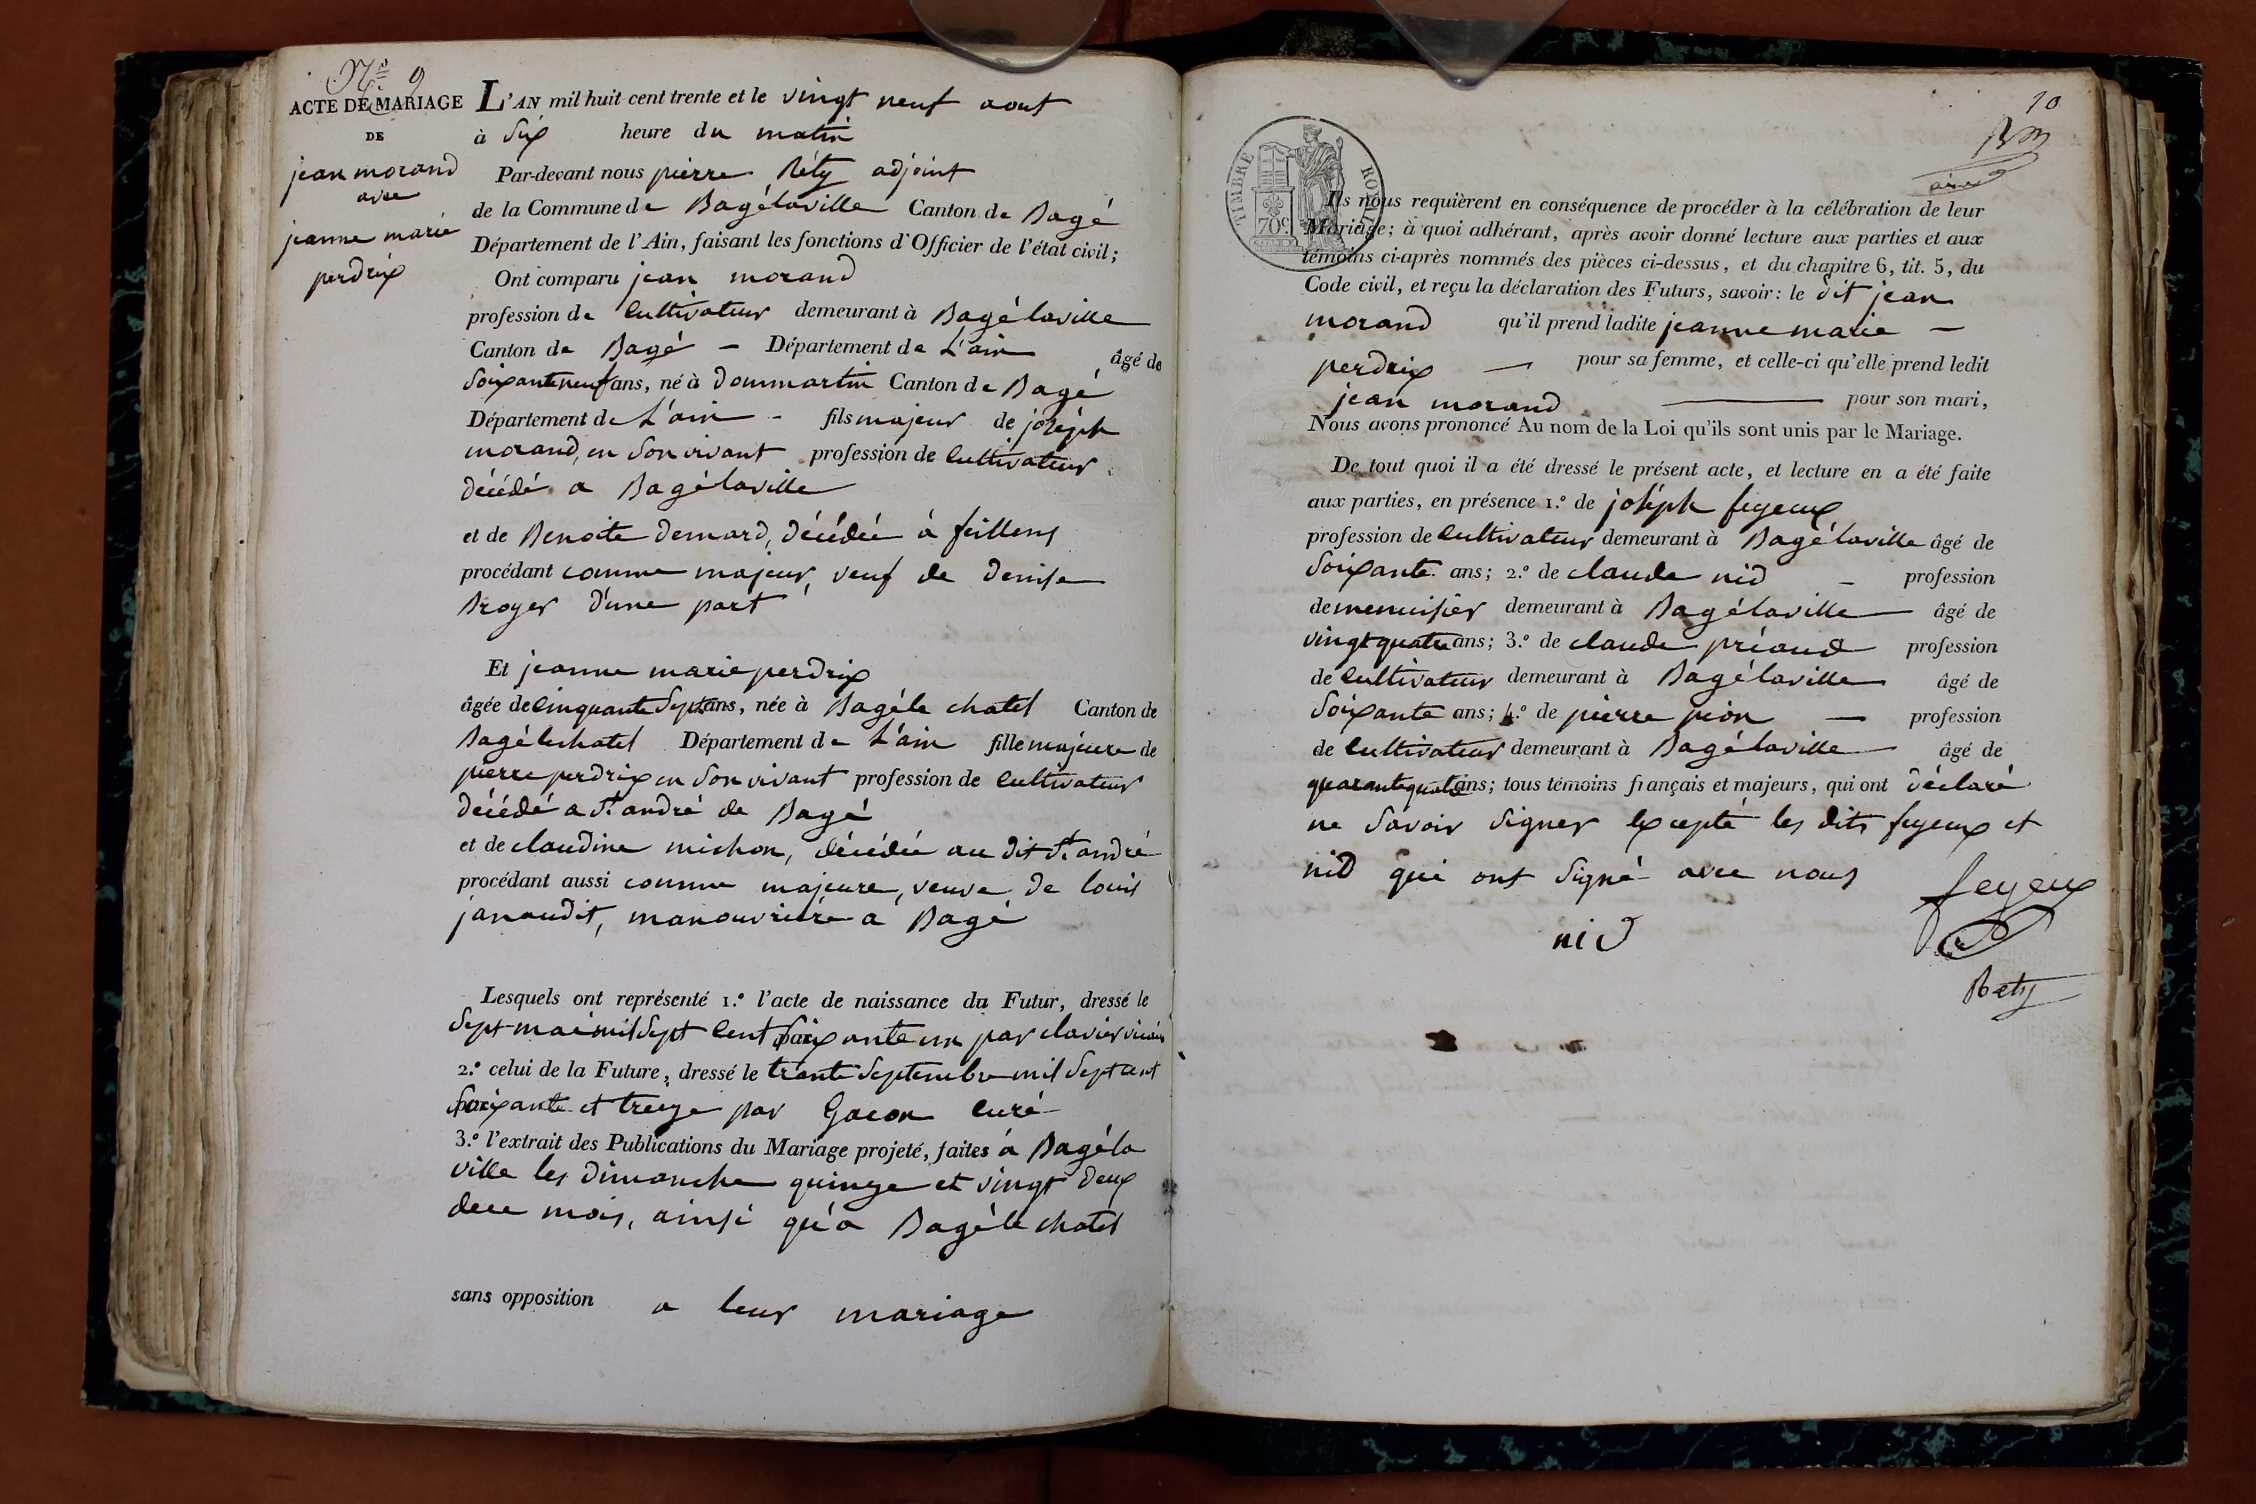 N.º 9
ACTE DE MARIAGE
DE
jean morand
avec
jeanne marie
perdrix
L'AN mil huit cent trente et le vingt neuf aout
à Six heure du matin
Par-devant nous pierre Réty adjoint
de la Commune de Bagélaville Canton de Bagé
Département de l'Ain, faisant les fonctions d'Officier de l'état civil;
Ont comparu jean morand
profession de Cultivateur demeurant à Bagélaville
Canton de Bagé - Département de L'ain âgé de
Soixanteneuf ans, né à Dommartin Canton de Bagé
Département de L'ain - fils majeur de joséph
morand, en Son vivant profession de Cultivateur
décédé a Bagélaville
et de Benoite Demard, décédée à feillens
procédant comme majeur, veuf de Denise
Broyer d'une part
Et jeanne marie perdrix
âgée de Cinquante Sept ans, née à Bagéle chatel Canton de
Bagélechatel Département de L'ain fille majeure de
pierre perdrix en Son vivant profession de Cultivateur
décédé a St andré de Bagé
et de claudine michon, décédée au dit St andré
procédant aussi comme majeure, veuve de louis
janaudit, manouvrière a Bagé
Lesquels ont représenté 1.º l'acte de naissance du Futur, dressé le
Sept mai mil Sept Cent Soixante un par clavier vicair
2.º celui de la Future, dressé le trente Septembre mil Sept cent
Soixante et treize par Gacon Curé
3.º l'extrait des Publications du Mariage projeté, faites à Bagéla
ville les Dimanche quinze et vingt deux
de ce mois, ainsi qu'a Bagéle chatel
sans opposition a leur mariage
10
TIMBRE ROYAL
70c
Ils nous requièrent en conséquence de procéder à la célébration de leur
Mariage; à quoi adhérant, après avoir donné lecture aux parties et aux
témoins ci-après nommés des pièces ci-dessus, et du chapitre 6, tit. 5, du
Code civil, et reçu la déclaration des Futurs, savoir: le dit jean
morand qu'il prend ladite jeanne marie -
perdrix - pour sa femme, et celle-ci qu'elle prend ledit
jean morand - pour son mari,
Nous avons prononcé Au nom de la Loi qu'ils sont unis par le Mariage.
De tout quoi il a été dressé le présent acte, et lecture en a été faite
aux parties, en présence 1.º de joséph feyeux
profession de Cultivateur demeurant à Bagélaville âgé de
Soixante ans; 2.º de claude nid - profession
de menuisier demeurant à Bagélaville âgé de
vingt quatre ans; 3.º de claude préaud profession
de Cultivateur demeurant à Bagélaville âgé de
Soixante ans; 4.º de pierre pion - profession
de Cultivateur demeurant à Bagélaville âgé de
quarantequatre ans; tous témoins français et majeurs, qui ont déclaré
ne Savoir Signer Excepté les dits feyeux et
nid qui ont Signé avec nous
feyeux
nid
Rety